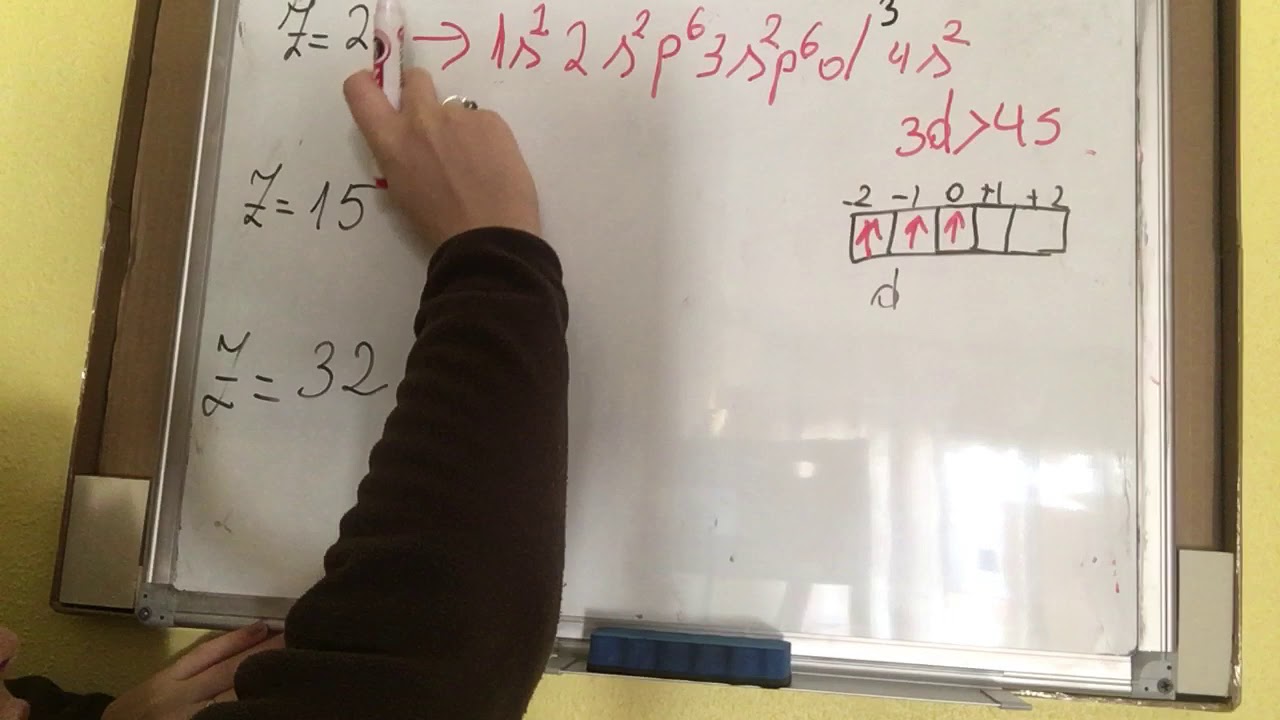 Z = 2 → 1s² 2s²p⁶ 3s²p⁶d³ 4s²
3d>4s
-2 -1 0 +1 +2
↑ ↑ ↑
d
Z = 15
Z = 32